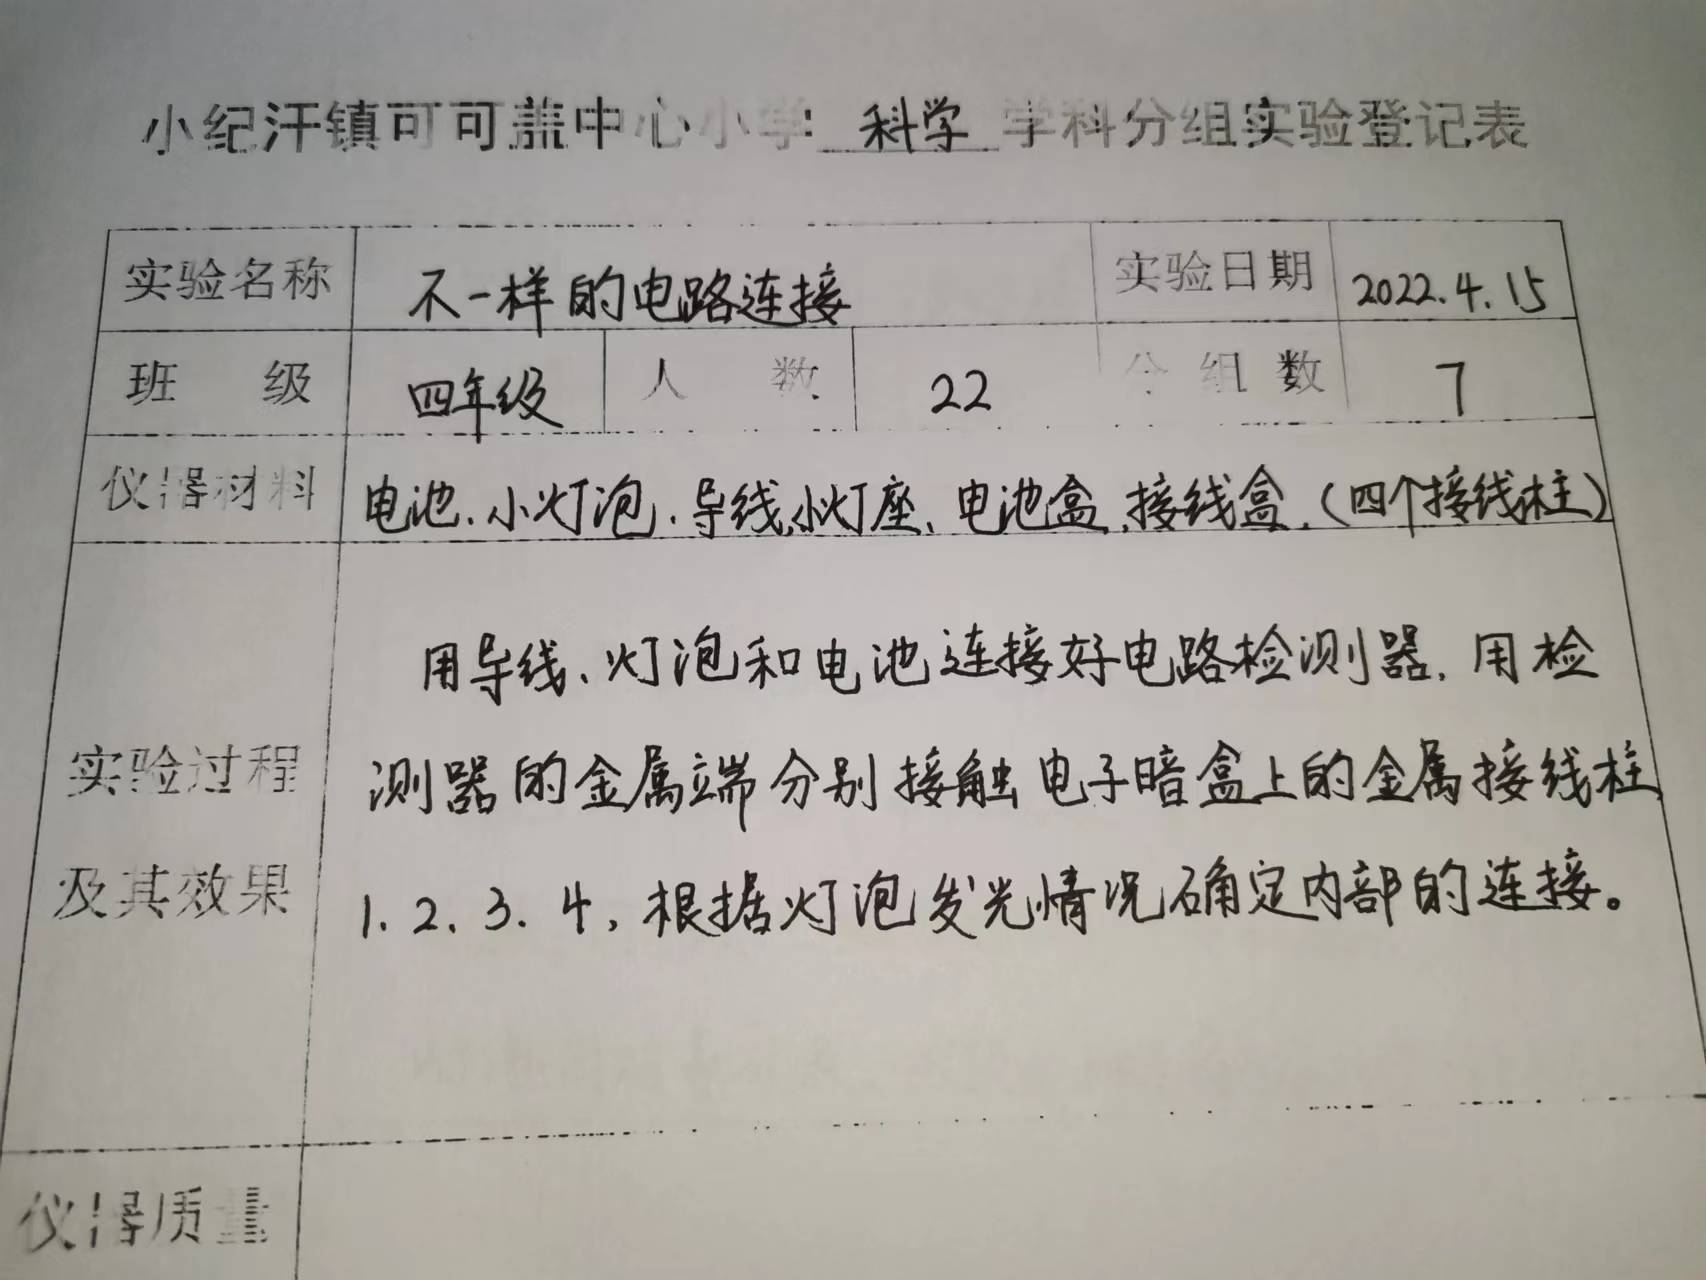 小纪汗镇可可盖中心小学 科学 学科分组实验登记表
实验名称 不一样的电路连接 实验日期 2022.4.15
班 级 四年级 人 数 22 分组数 7
仪器材料 电池、小灯泡、导线、小灯座、电池盒、接线盒、(四个接线柱)
用导线、灯泡和电池连接好电路检测器,用检
实验过程 测器的金属端分别接触电子暗盒上的金属接线柱
及其效果 1.2.3.4,根据灯泡发光情况确定内部的连接。
仪器质量